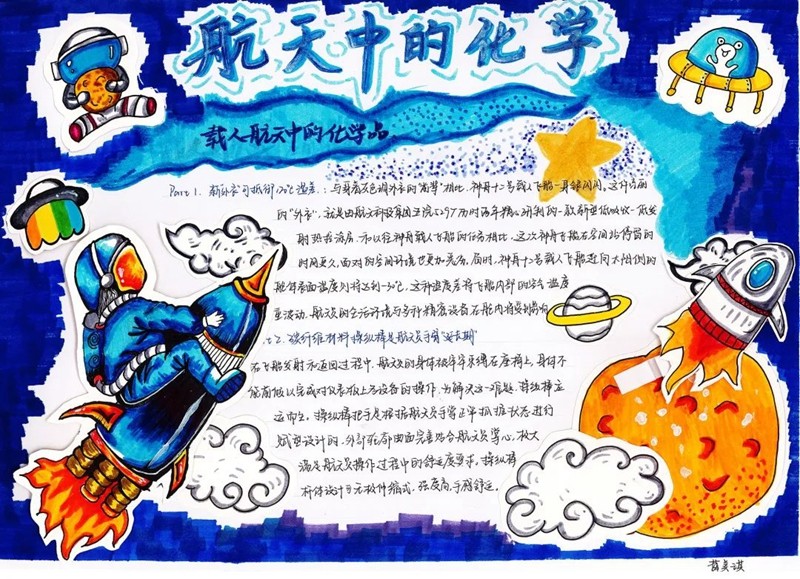 航天中的化学
载人航天中的化学品
Part 1. 新外衣可抵御 ℃温差.：与身着灰色调外衣的"前辈"相比，神舟十二号载人飞船一身银闪闪，这件崭新
的"外衣"，就是由航天科技集团五院529厂历时两年精心研制的一款新型低吸收-低发
射热控涂层。和以往神舟载人飞船的任务相比，这次神舟飞船在空间站停留的
时间更久，面对的空间环境也更加恶劣。届时，神舟十二号载人飞船迎向太阳侧的
舱体表面温度则将达到 ℃，这种温度差将飞船内部的 温度
波动，航天员的生活环境与多种精密设备在舱内将受到影响
2.碳纤维材料操纵棒是航天员手臂"延长
在飞船发射和返回过程中，航天员的身体被牢牢束缚在座椅上，身体不
能前倾以完成对仪表板上各设备的操作，为解决这一难题，操纵棒应
运而生。操纵棒把手是根据航天员手掌正常抓握状态进行
设计的，外部 曲面完美贴合航天员掌心，极大
满足航天员操作过程中的舒适度要求，操纵棒
杆体设计 伸缩式，强度高，手感舒适。